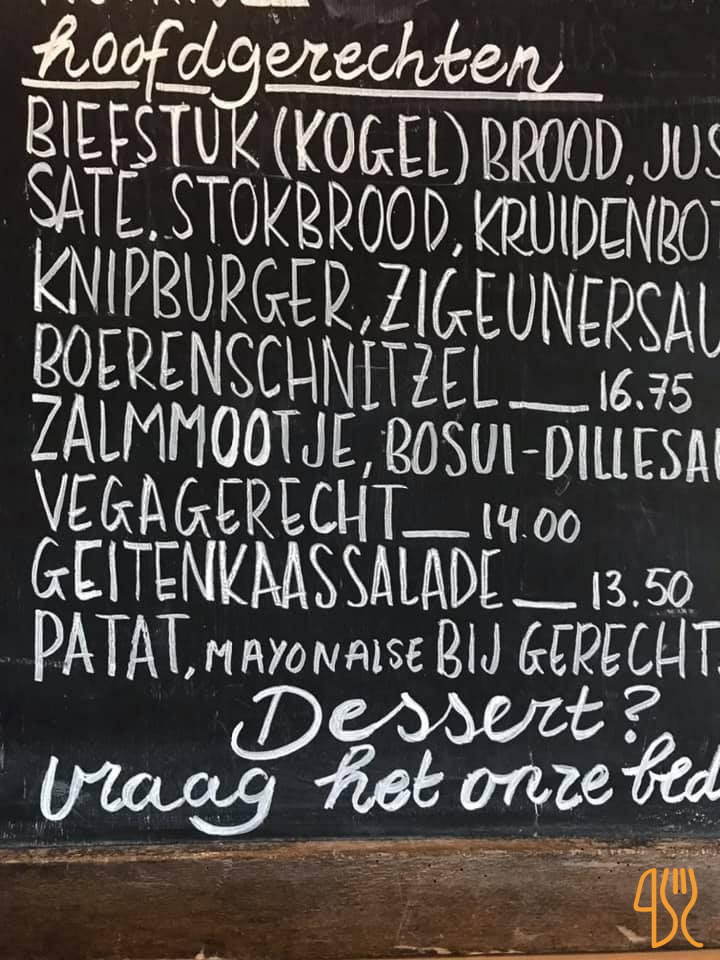 hoofdgerechten
BIEFSTUK (KOGEL) BROOD, JUS
SATÉ, STOKBROOD, KRUIDENBOT
KNIPBURGER, ZIGEUNERSAU
BOERENSCHNITZEL __ 16.75
ZALMMOOTJE, BOSUI-DILLESAU
VEGAGERECHT __ 14.00
GEITENKAASSALADE __ 13.50
PATAT, MAYONAISE BIJ GERECHT
Dessert?
vraag het onze bed